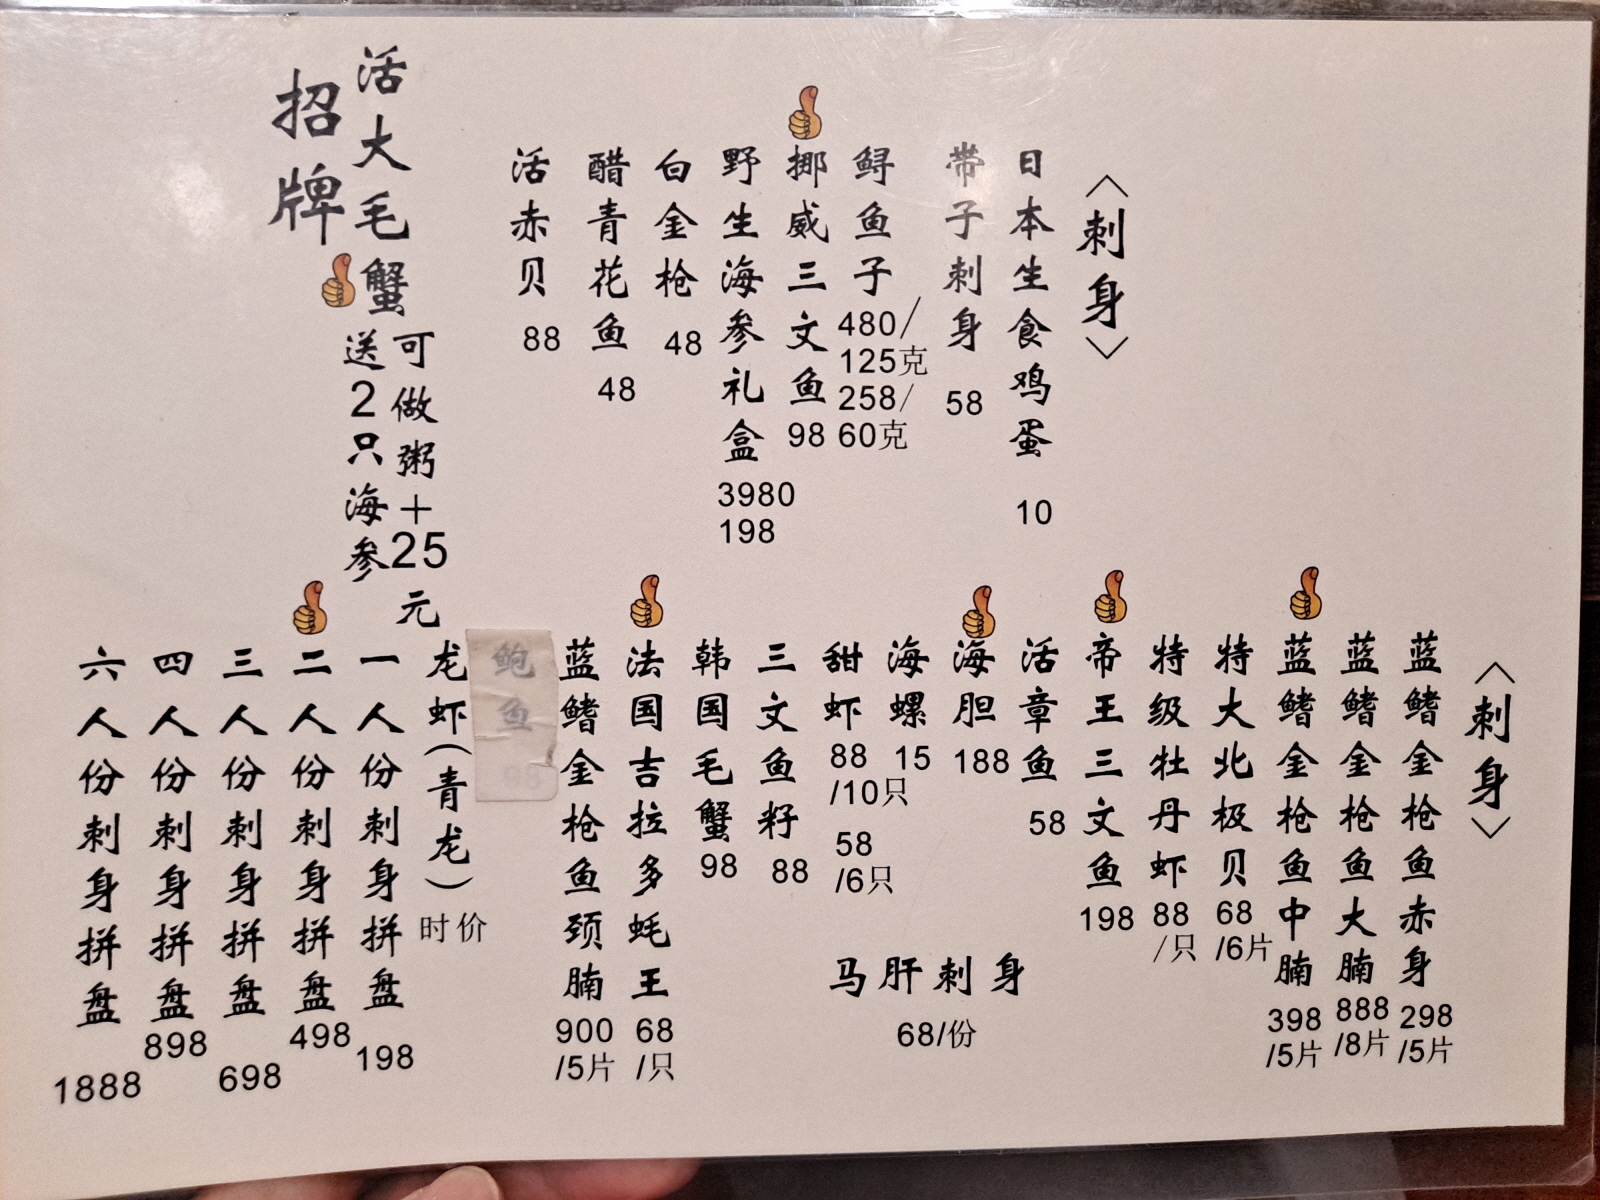 〈刺身〉
日本生食鸡蛋 10
带子刺身 58
鲟鱼子 480/125克 258/60克
挪威三文鱼 98
野生海参礼盒 3980 198
白金枪 48
醋青花鱼 48
活赤贝 88
活大毛蟹
招牌
可做粥+25元
送2只海参
〈刺身〉
蓝鳍金枪鱼赤身 298/5片
蓝鳍金枪鱼大腩 888/8片
蓝鳍金枪鱼中腩 398/5片
特大北极贝 68/6片
特级牡丹虾 88/只
帝王三文鱼 198
活章鱼 58
海胆 188
海螺 15
甜虾 88/10只 58/6只
三文鱼籽 88
韩国毛蟹 98
法国吉拉多蚝王 68/只
蓝鳍金枪鱼颈腩 900/5片
鲍鱼 98
龙虾(青龙) 时价
一人份刺身拼盘 198
二人份刺身拼盘 498
三人份刺身拼盘 698
四人份刺身拼盘 898
六人份刺身拼盘 1888
马肝刺身
68/份